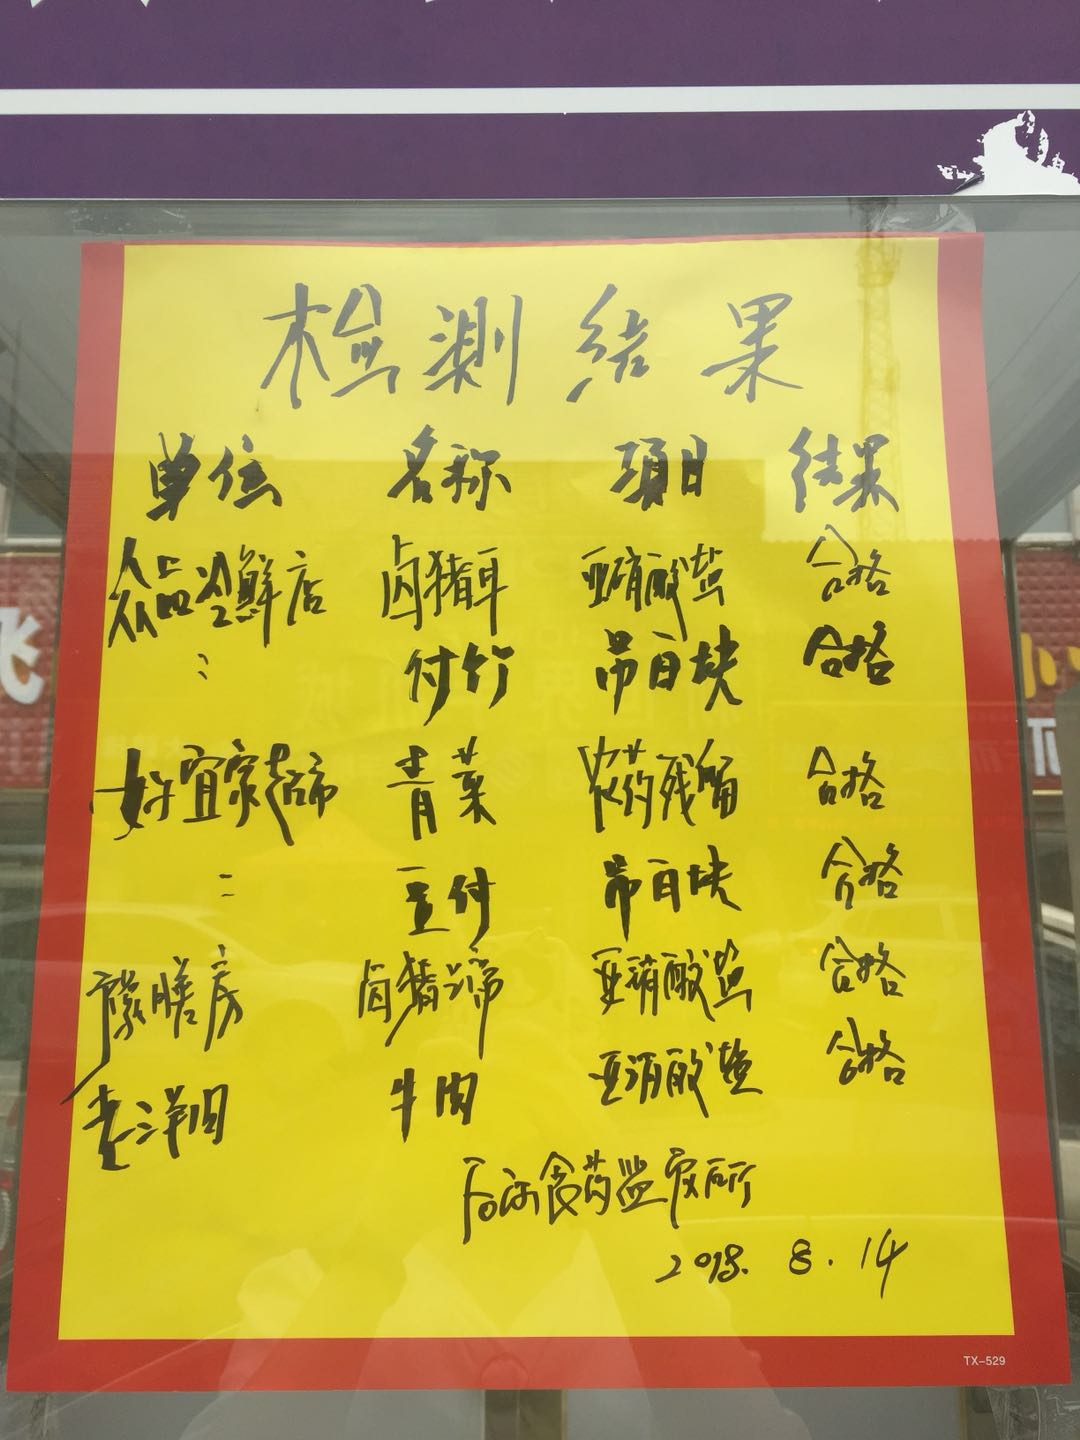 检测结果
单位 名称 项目 结果
众品冷鲜店 卤猪耳 亚硝酸盐 合格
〃 付竹 吊白块 合格
好宜家超市 青菜 农药残留 合格
〃 豆付 吊白块 合格
膳房 卤猪蹄 亚硝酸盐 合格
老洋 牛肉 亚硝酸盐 合格
食药监所
2018. 8. 14
TX-529